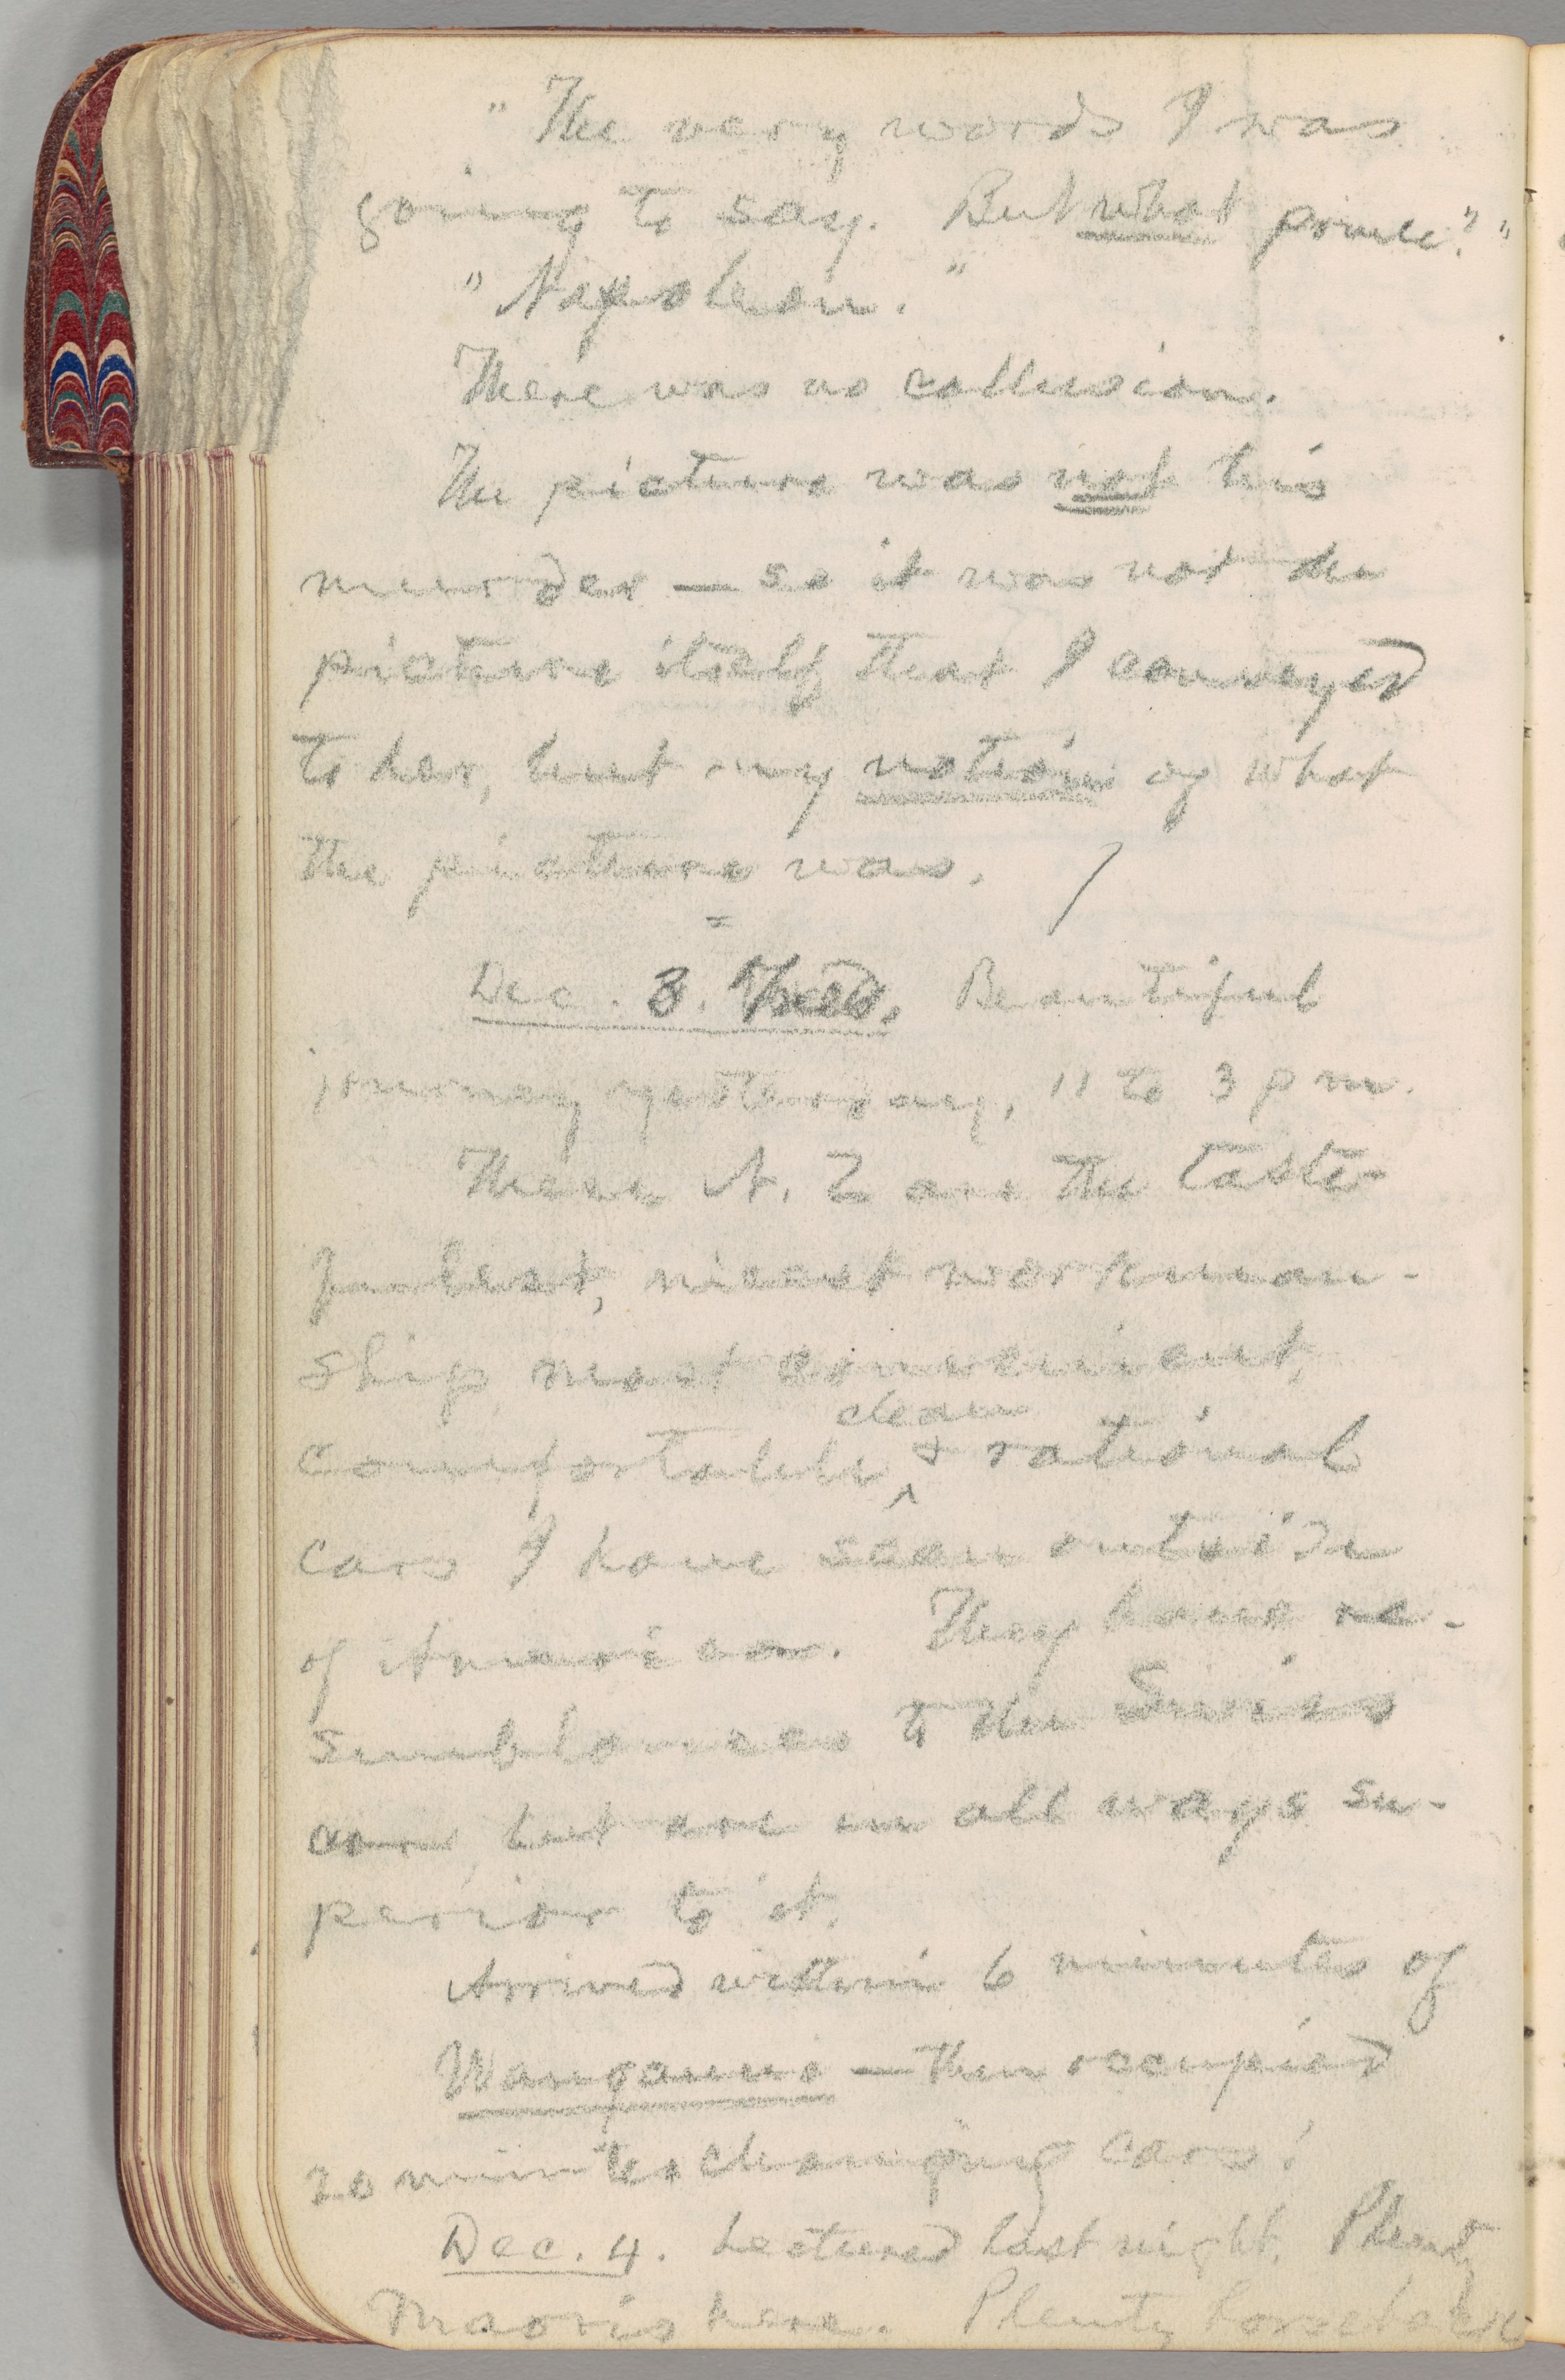 "The very words I was
going to say. But what prince?"
"Napoleon."
There was no collusion.
The picture was not his
murder — so it was not the
picture itself that I conveyed
to her, but my notion of what
the picture was.
=
Dec. 3. Beautiful
journey yesterday, 11 to 3 p m.
These N. Z are the taste-
fulest, nicest workman-
ship, most convenient,
clean
comfortable, & rational
^
cars I have seen outside
of America. They have re-
semblances to the Swiss
cars, but are in all ways su-
perior to it.
Arrived within 6 minutes of
Wanganui — then occupied
20 minutes changing cars!
Dec. 4. Lectured last night. Plenty
Maoris here. Plenty horseback